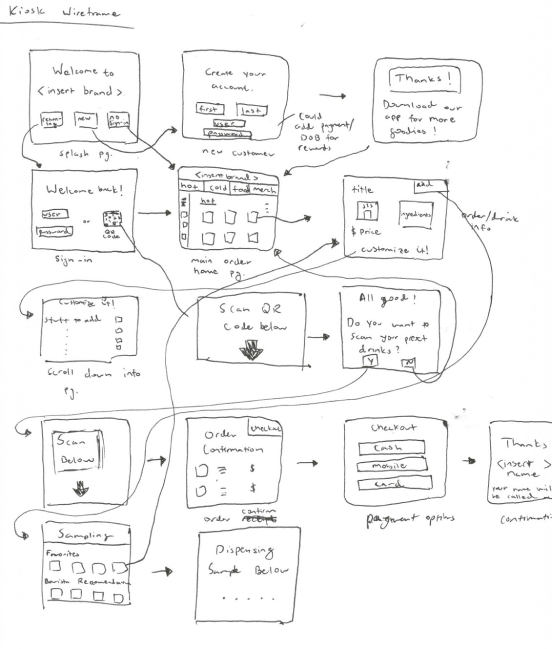 Kiosk Wireframe
Welcome to
<insert brand>
return-
ing
new
no
sign-in
splash pg.
Create your
account.
first
last
user
password
new customer
Could
add payment/
DOB for
rewards
Thanks!
Download our
app for more
goodies!
Welcome back!
user
password
or
QR
code
sign-in
<insert brand>
hot
cold
food
merch
hot
main order
home pg.
title
add
ingredients
$ price
customize it!
order/drink
info
customize it!
stuff to add
scroll down info
pg.
Scan QR
code below
All good!
Do you want to
scan your prext
drinks?
Y
no
Scan
Below
Order
Confirmation
checkout
$
$
order
confirm
receipt
Checkout
Cash
mobile
card
payment options
Thanks
<insert >
name
your name will
be called
confirmation
Sampling
Favorites
Barista Recomendation
Dispensing
Sample Below
. . . . .